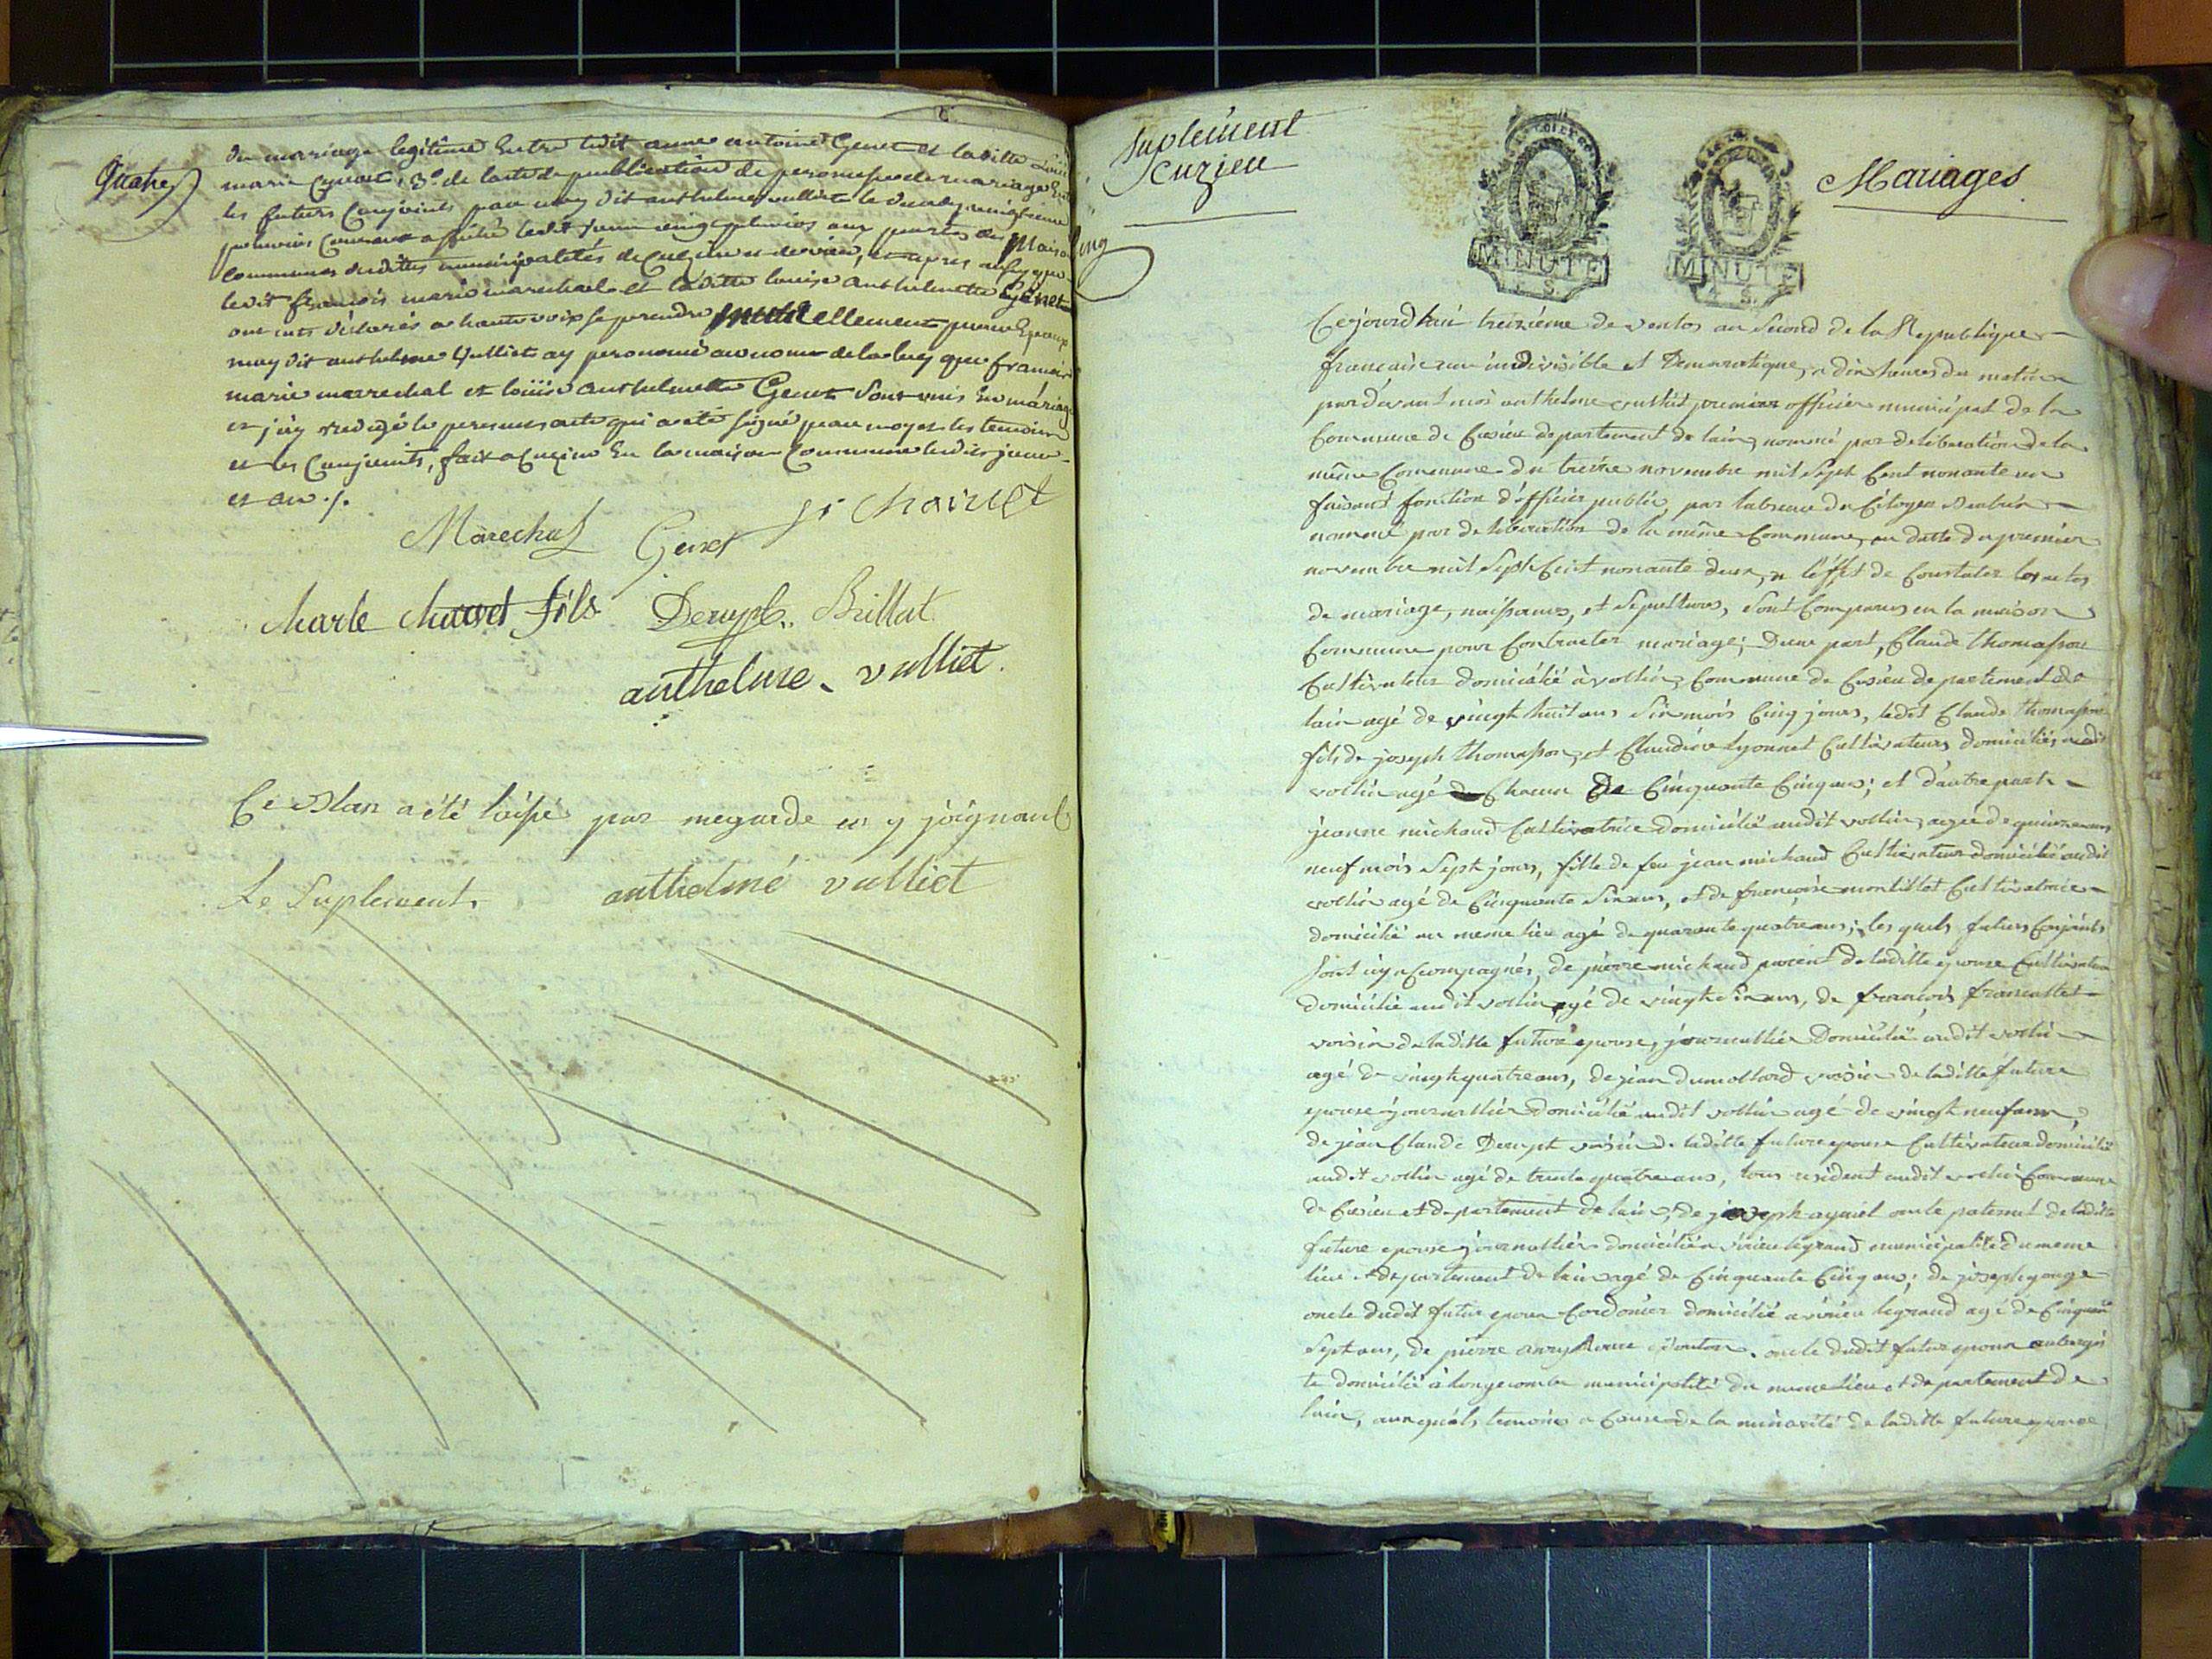 Quatre
du mariage legitime Entre ledit anne antoine Genet et laditte Loüi
marie Cyvoct, 3.e de lacte de publication de promesse de mariage Ent
les futurs Conjoints par moy dit anthelme vulliet le
commune desdittes municipalités de Cuzieu et de virieu, et après aussy que
ledit françois marie marechal et laditte louise anthelmette Genet
ont eut déclarés a haute voix se prendre mutuellement pour Epoux
moy dit anthelme Vulliet ay prononcé au nom de la loy que françois
marie marechal et loüise anthelmette Genet Sont unis En mariage
et j'ay redigé le present acte qui a été signé par moy et les temoins
et les Conjoints, fait a Cuzieu En la maison Commune lesdits jour
et an ./.
Marechal Genet
Charle Charvet fils Decrept. Brillat
anthelme vulliet.
Ce Blan a été laissé par megarde en y joignant
Le Suplement anthelme vulliet
Suplement
Cuzieu
Cinq
MINUTE
MINUTE
Mariages.
Cejourd'hui treizieme de ventos an Second de la Republique
française une indivisible et Democratique, a dix heures du matin
pardevant moi anthelme vulliet premier officier municipal de la
Commune de Cusieu departement de lain, nommé par deliberation de la
même Commune du treize novembre mil Sept Cent nonante un
faisant fonction d'officier public, par labsence du Citoyen
nommé par deliberation de la même Commune, en datte du premier
novembre mil Sept Cent nonante deux, a l'effet de Constater les actes
de mariage, naissances, et Sepultures, sont Comparus en la maison
Commune pour Contracter mariage; Dune part, Claude thomasson
Cultivateur domicilié à vollin, Commune de Cusieu departement de
lain agé de vingt huit ans Six mois Cinq jours, ledit Claude thomasson
fils de joseph thomasson, et Claudine Lyonnet Cultivateurs domiciliés audit
vollin agé de Chacun De Cinquante Cinq ans; et d'autre part
jeanne michaud Cultivatrice domicilié audit vollin, agée de quinze ans
neuf mois Sept jours, fille de feu jean michaud Cultivateur domicilié audit
vollin agé de Cinquante Six ans, et de françoise montillet Cultivatrice
domicilié au meme lieu agé de quarante quatre ans; les quels futurs Conjoints
sont accompagnés, de pierre michaud parent de laditte epouse Cultivateur
domicilié audit vollin agé de vingt six ans, de françois francillet
voisin de laditte future epouse, journallier Domicilié audit vollin
agé de vingt quatre ans, de jean dumollard voisin de laditte future
epouse journallier domicilié audit vollin agé de vingt neuf ans,
de jean Claude Decrept voisin de laditte future epouse Cultivateur domicilié
audit vollin agé de trente quatre ans, tous resident audit vollin Commune
de Cusieu et departement de lain, de joseph ayniel oncle paternel de laditte
future epouse journallier domicilié a virieu legrand municipalité du meme
lieu et departement de lain agé de Cinquante Cinq ans; de joseph gonge
oncle dudit futur epoux Cordonier domicilié a virieu legrand agé de Cinquante
Sept ans, de pierre oncle dudit futur epoux aubergis
te domicilié à longecombe municipalité du meme lieu et departement de
lain, auxquels temoins a Cause de la minorité de laditte future epouse